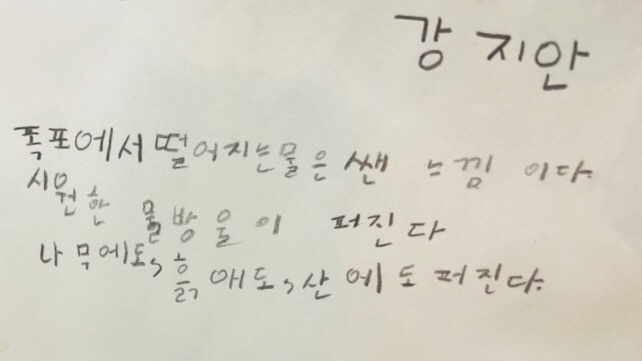 강 지안
폭포에서 떨어지는물은 쌘 느낌 이다.
시원한 물방울이 퍼진다
나무에도, 흙애도, 산에도 퍼진다.